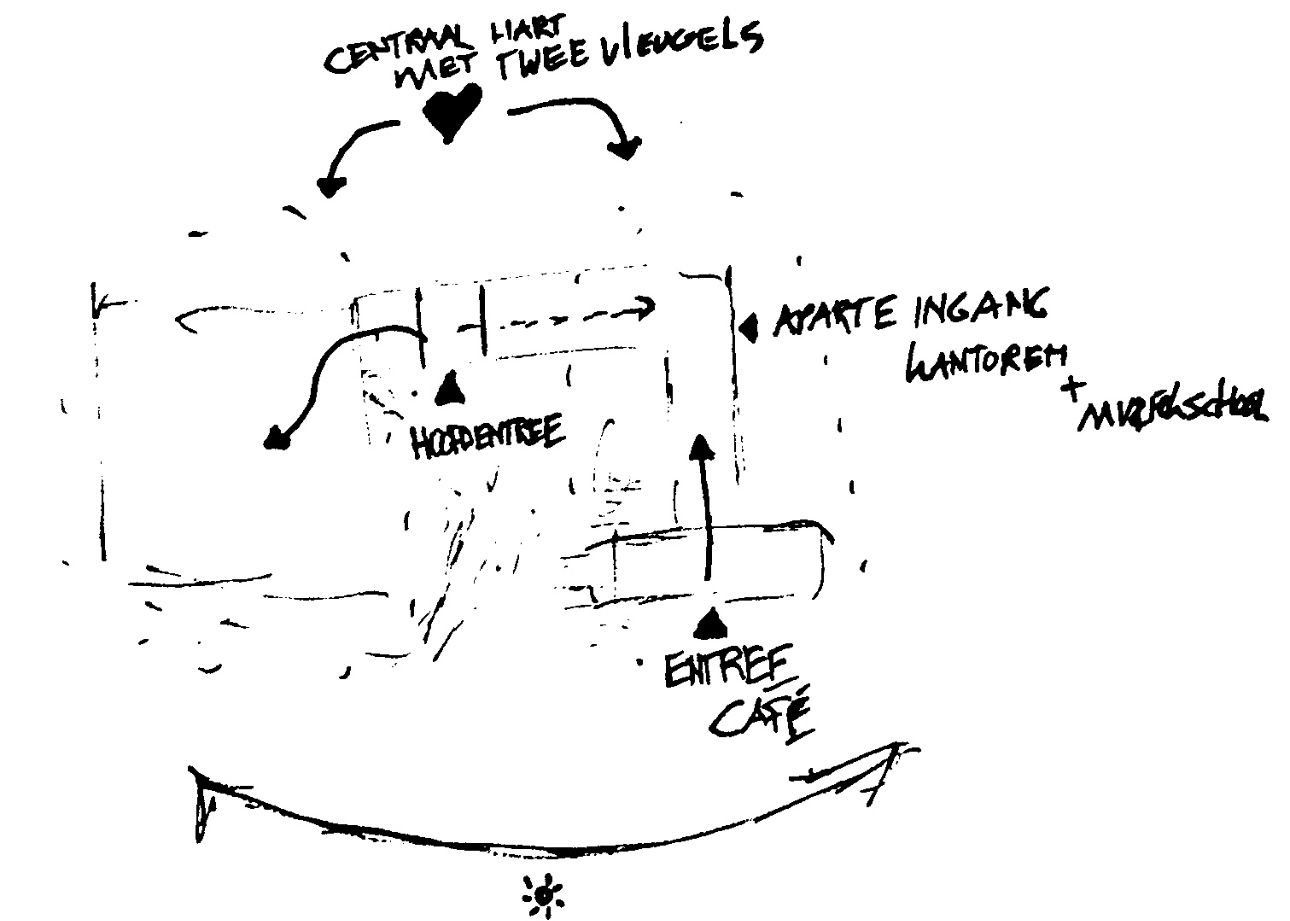 CENTRAAL HART
MET TWEE VLEUGELS
APARTE INGANG
KANTOREN
+
HOOFDENTREE
ENTREE
CAFÉ